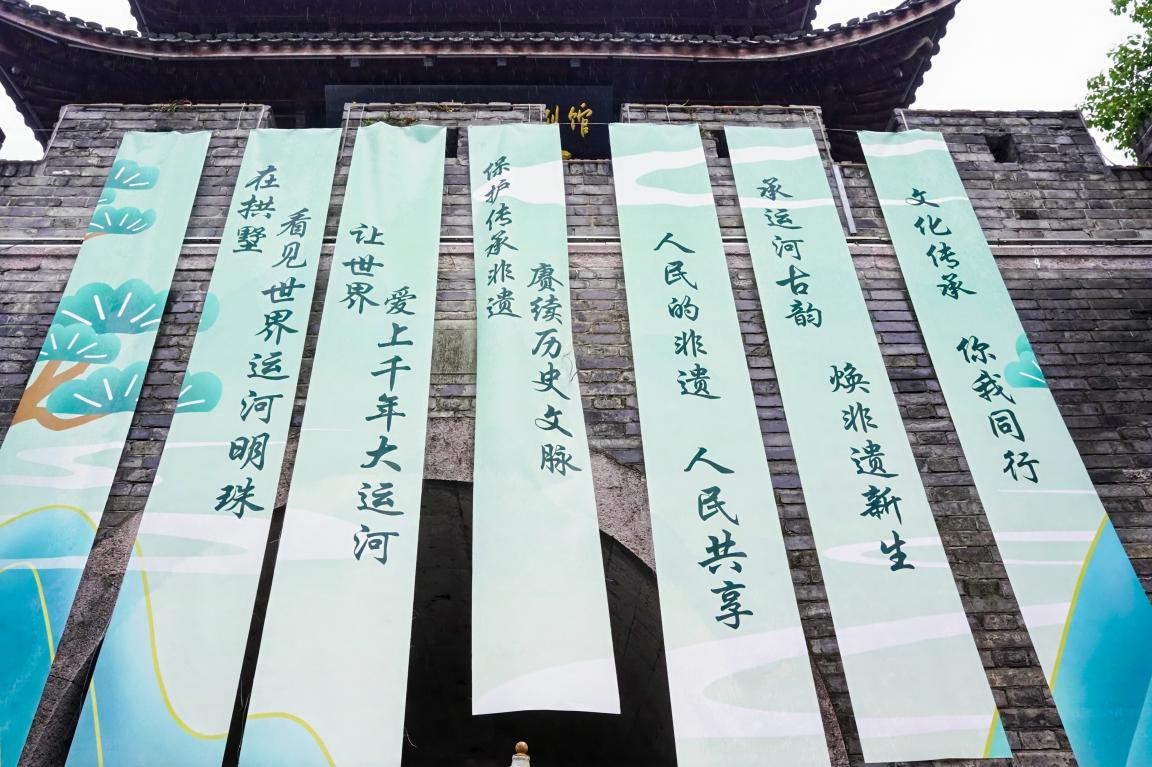 馆
在拱墅
看见世界运河明珠
让世界
爱上千年大运河
保护传承非遗
赓续历史文脉
人民的非遗 人民共享
承运河古韵
焕非遗新生
文化传承 你我同行